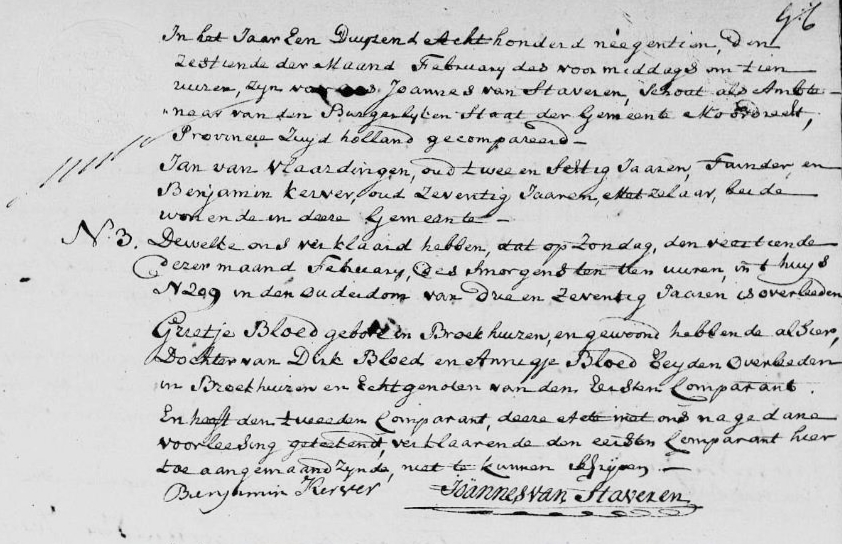 In het Jaar Een Duyzend Acht honderd neegentien, den
zestiende der Maand February des voormiddags om tien
uuren, zyn voor ons Joannes van Staveren, Schout als Ambte-
naar van den Burgerlyken Staat der Gemeente Moordrecht,
Provincie Zuyd holland gecompareerd
Jan van Vlaardingen, oud twee en Sestig Jaaren, en
Benjamin Kerver, oud Zeventig Jaaren, Metzelaar, beide
wonende in deeze Gemeente
N. 3. Dewelke ons verklaard hebben, dat op Zondag, den veertiende
dezer maand February, des Smorgens ten tien uuren, in t huys
N 209 in den Ouderdom van Drie en Zeventig Jaaren is overleeden
Grietje Bloed geboren in Broekhuizen, en gewoond hebbende alhier,
Dochter van Dirk Bloed en Annigje Bloed Beyden Overleeden
in Broekhuizen en Echtgenoten van den Eersten Comparant.
En heeft den tweeden Comparant, deeze Acte met ons na gedane
voorleesing getekend, verklaarende den eersten Comparant hier
toe aangemaand zynde, niet te kunnen Schryven
Benjamin Kerver Joannes van Staveren